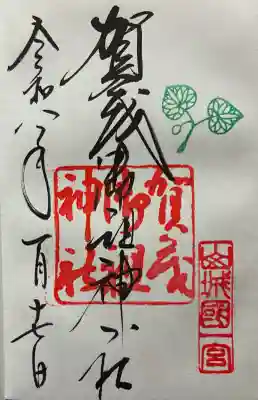 山城國一宮
賀茂御祖神社
賀茂
御祖
神社
令和八年一月十七日